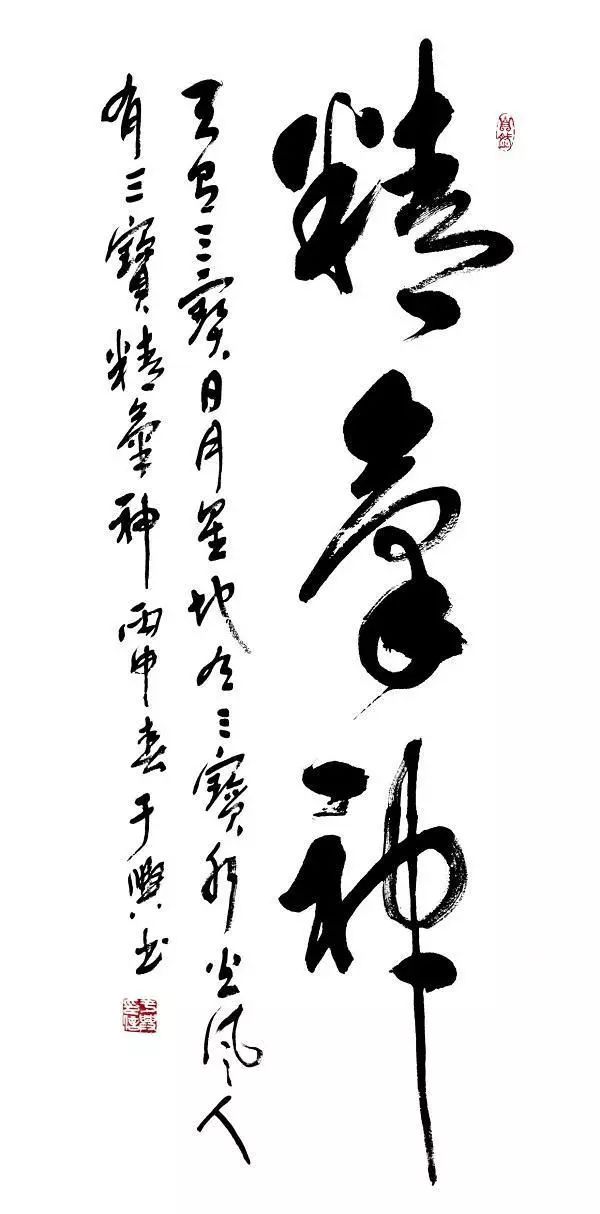 精氣神
天有三寶日月星地有三寶水火風人
有三寶精氣神丙申春于興書